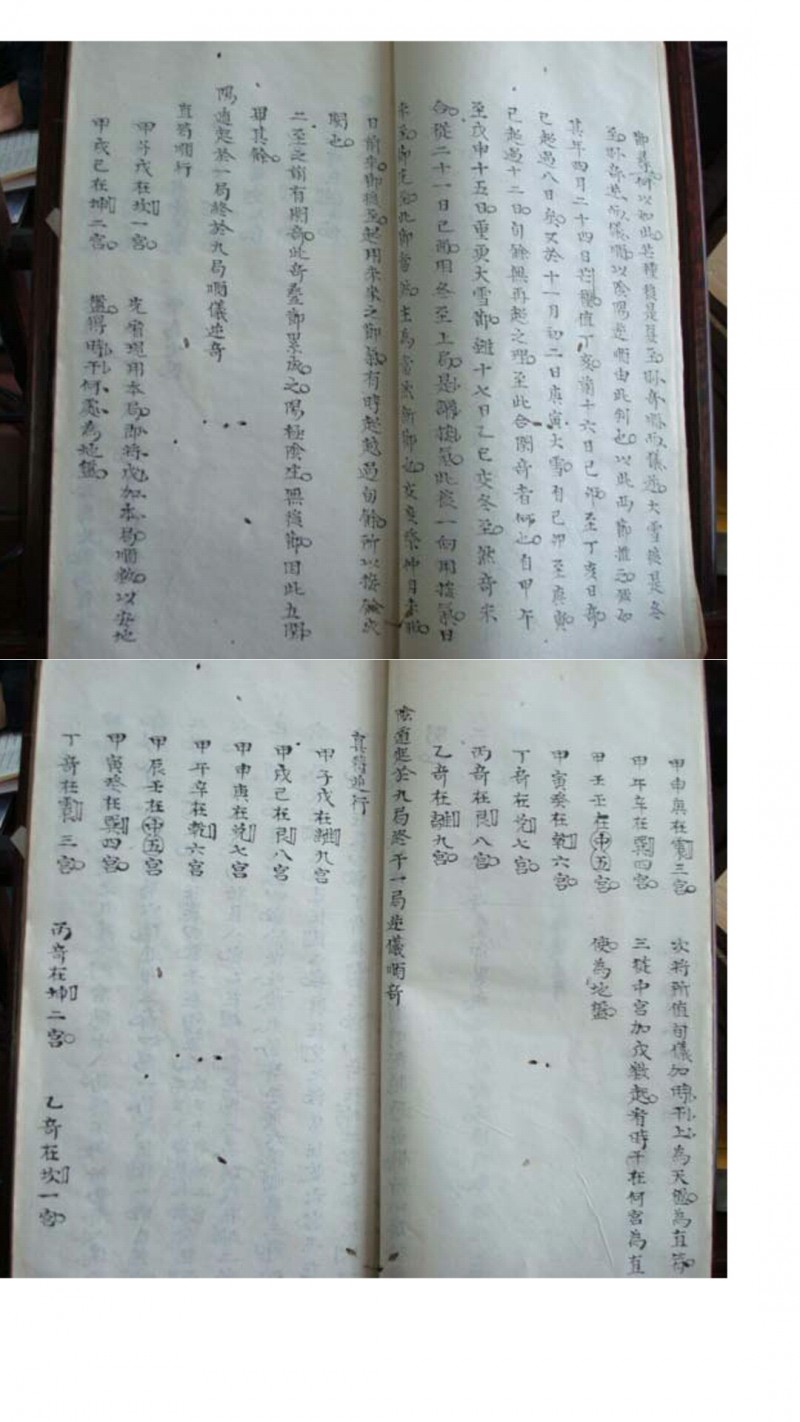 至卦奇逆而儀順以陰陽逆順由此制也以此兩節推之
其年四月二十四日芒種值丁亥前十六日己卯至丁亥日奇
已起過八日矣又於十一月初二日庚寅大雪有己卯至庚寅
已起過十二日旬餘無再起之理至此合閏奇者何也自甲午
至戊申十五日重更大雪節雖十七日乙巳交冬至然奇未
合從二十一日己酉用冬至上局是謂接氣此後一向用接氣日
日前未節後至起用未來之節氣有時起越過旬餘所以接
閏也
二至之前有閏奇此奇疊節累成之陽極陰生無後節因此五閏
畢其餘
陽遁起於一局終於九局順儀逆奇
直符順行
甲子戊在坎一宮
甲戌己在坤二宮
先看現用本局即將戊加本局順數以安地
盤得時干何處為地盤
甲申庚在震三宮
甲午辛在巽四宮
甲壬壬在中五宮
甲寅癸在乾六宮
丁奇在兌七宮
丙奇在艮八宮
乙奇在離九宮
次將所值旬儀加時干上為天盤為直符
三從中宮加戊數起看時干在何宮為直
使為地盤
陰遁起於九局終于一局逆儀順奇
直符逆行
甲子戊在離九宮
甲戌己在艮八宮
甲申庚在兌七宮
甲午辛在乾六宮
甲辰壬在中五宮
甲寅癸在巽四宮
丁奇在震三宮
丙奇在坤二宮
乙奇在坎一宮